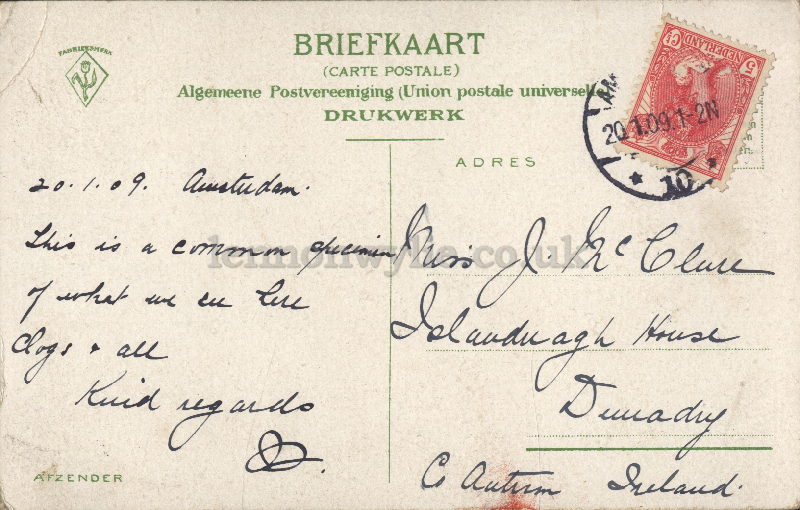 FABRIEKSMERK
BRIEFKAART
(CARTE POSTALE)
Algemeene Postvereeniging (Union postale universelle
DRUKWERK
NEDERLAND
5 Ct
AM
20.1.09.1-2N
10
20.1.09. Amsterdam.
This is a common specimen
of what we see here
Clogs & all
Kind regards
AFZENDER
ADRES
Miss J. McClure
Islandreagh House
Dunadry
Co Antrim Ireland.
lennonwylie.co.uk